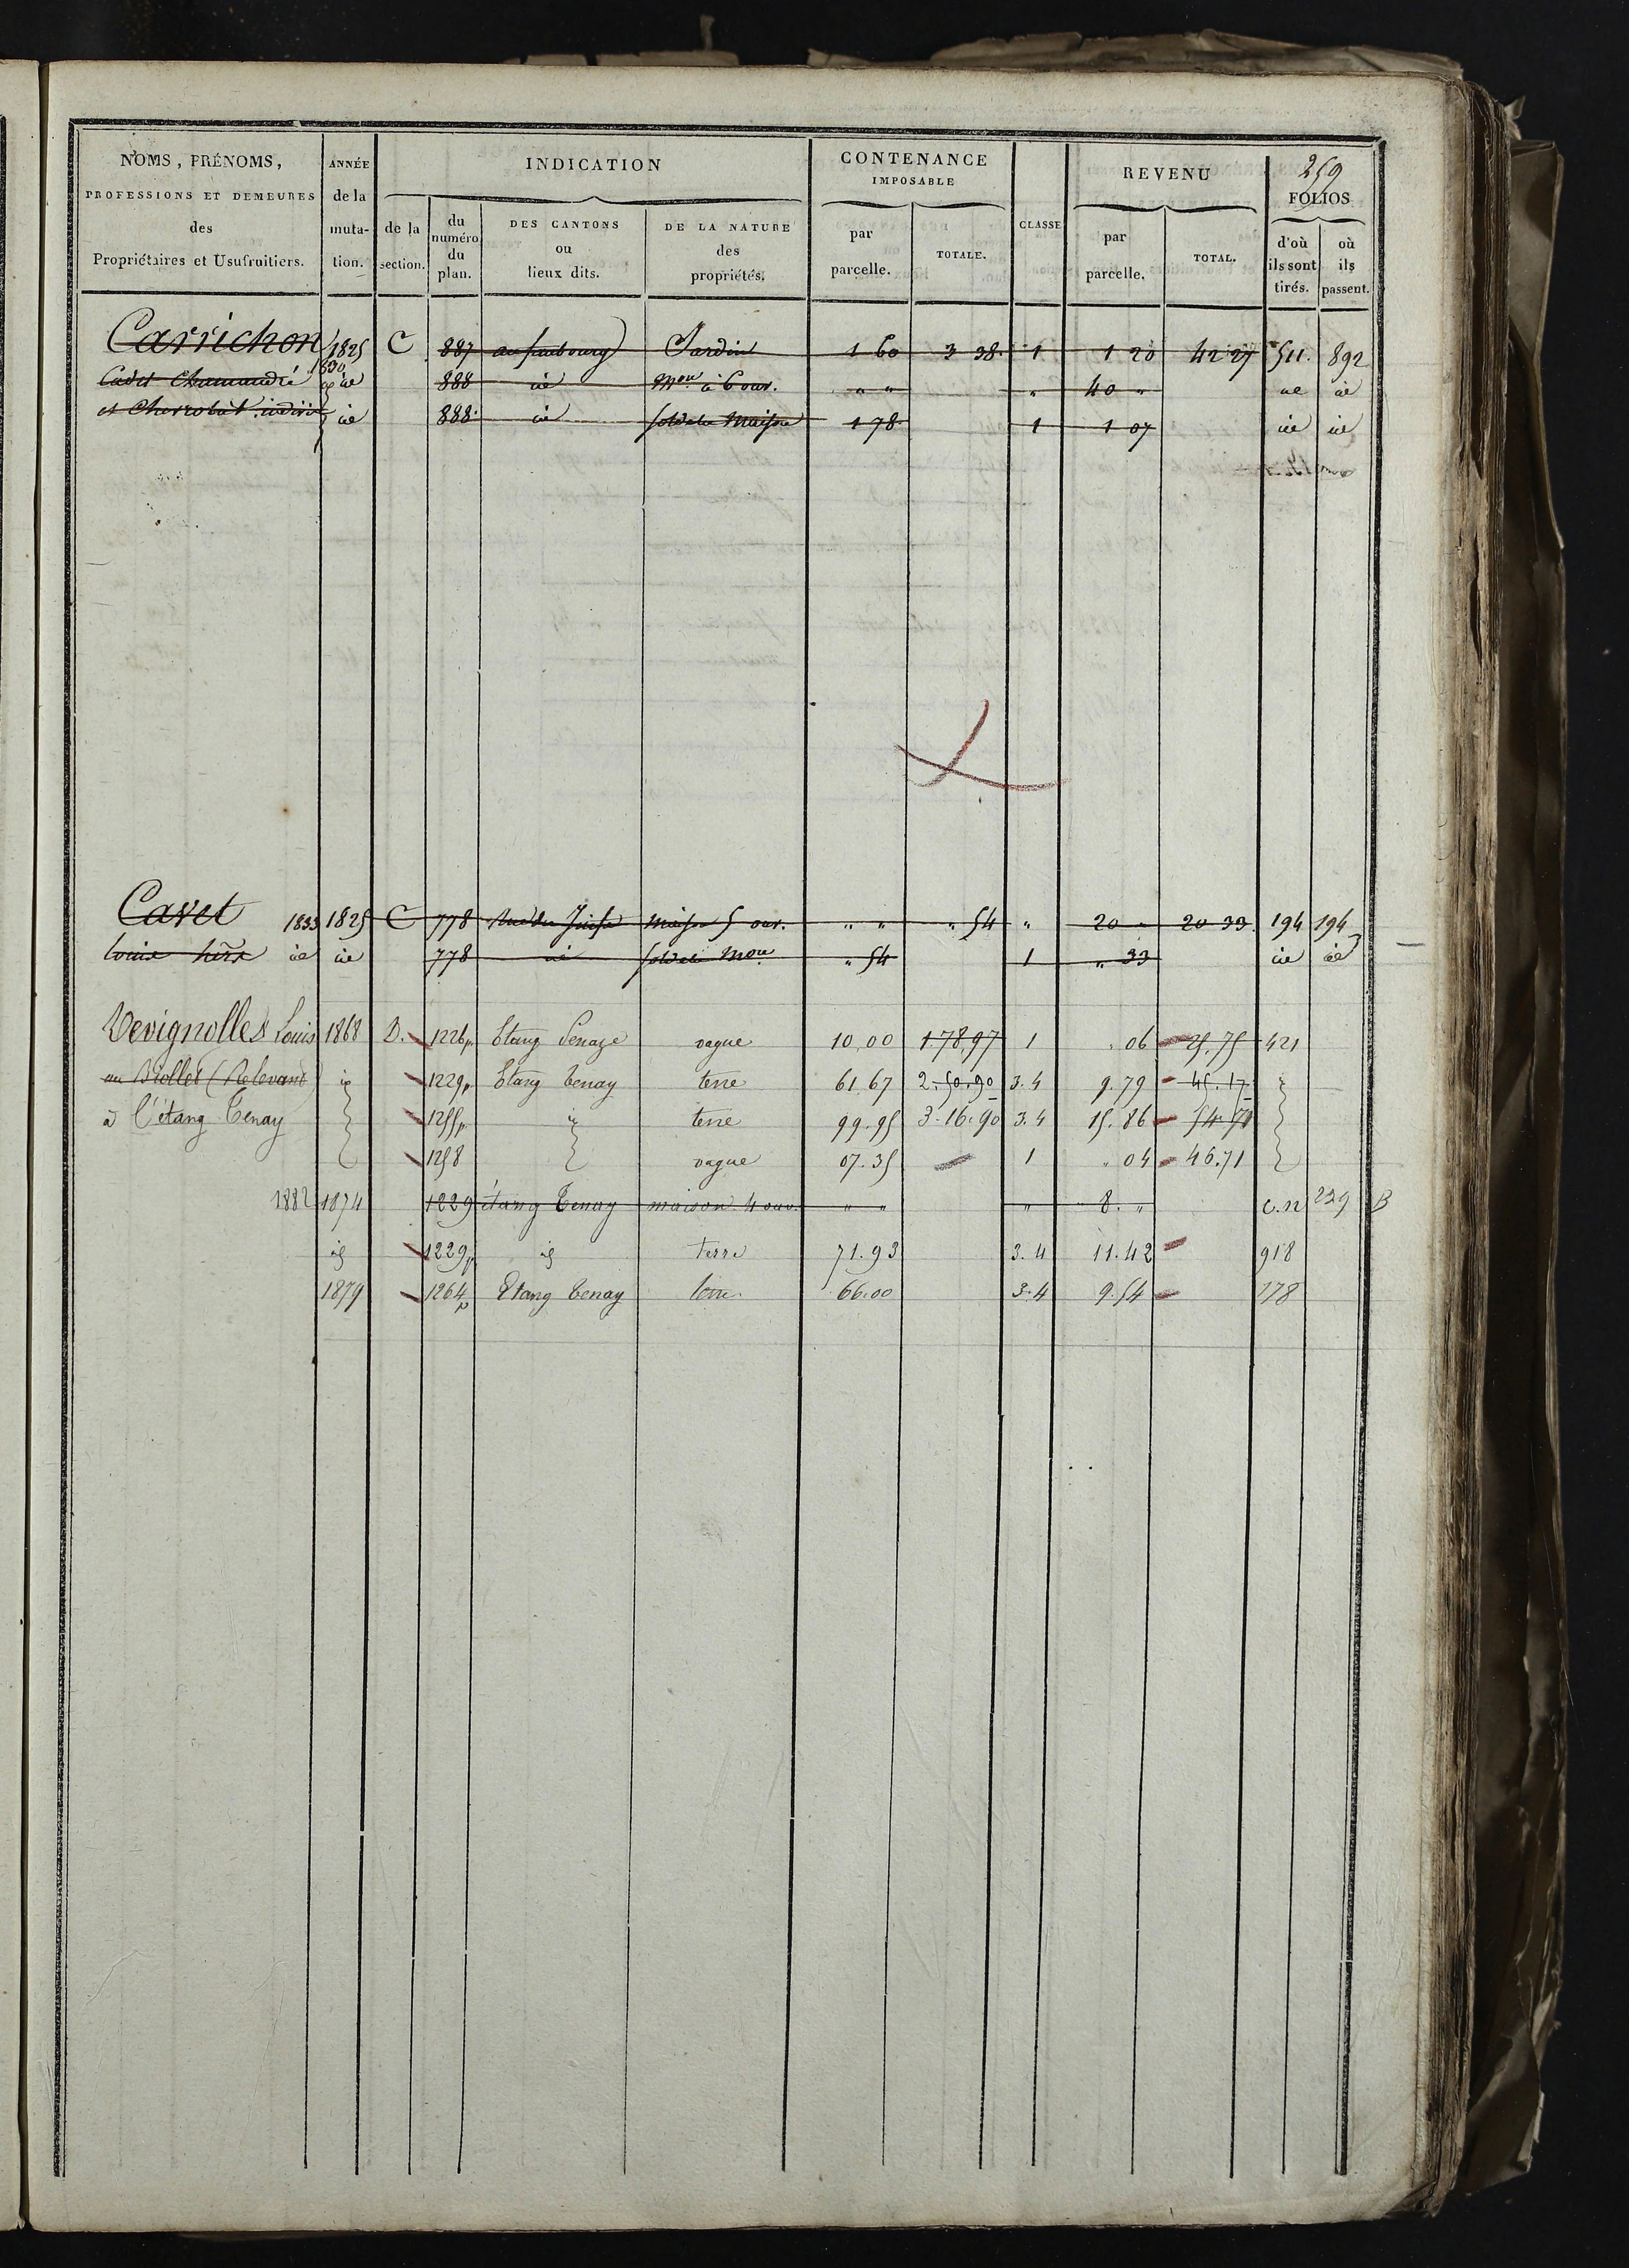 259
NOMS, PRÉNOMS, ANNÉE INDICATION CONTENANCE REVENU FOLIOS
PROFESSIONS ET DEMEURES de la IMPOSABLE
des muta- de la du DES CANTONS DE LA NATURE par TOTALE. CLASSE par TOTAL. d'où où
Propriétaires et Usufruitiers. tion. section. numéro ou des parcelle. parcelle. ils sont ils
du plan. lieux dits. propriétés. tirés. passent.
Carrichon 1825 C 887 au faubourg Jardin 1 60 3 38 1 1 20 42 27 511. 892
1830
Cadet id 888 id Mon à 6 ouv. " " " 40 " id id
et id 888 id sol de la Maison 1 78 1 1 07 id id
Cavet 1833 1825 C 778 Maison 5 ouv. " " " 54 " 20 " 20 33 194 194
id id 778 id sol de la Mon " 54 1 " 33 id id
Devignolles Louis 1868 D. 1226p. Etang Senaye vague 10,00 1.78,97 1 . 06 25.75 421
au Biollet (Relevant) id 1229p Etang Tenay terre 61.67 2.50.90 3.4 9.79 45.17
à l'étang Tenay 1255p. id terre 99.95 3.16.90 3.4 15.86 54.71
1258 vague 07.35 1 . 04 46.71
1882 1874 1229 étang Tenay maison 4 ouv. " " " 8. " c.n 229 B
id 1229p id terre 71.93 3.4 11.42 918
1879 1264p Etang Tenay terre. 66.00 3.4 9.54 778